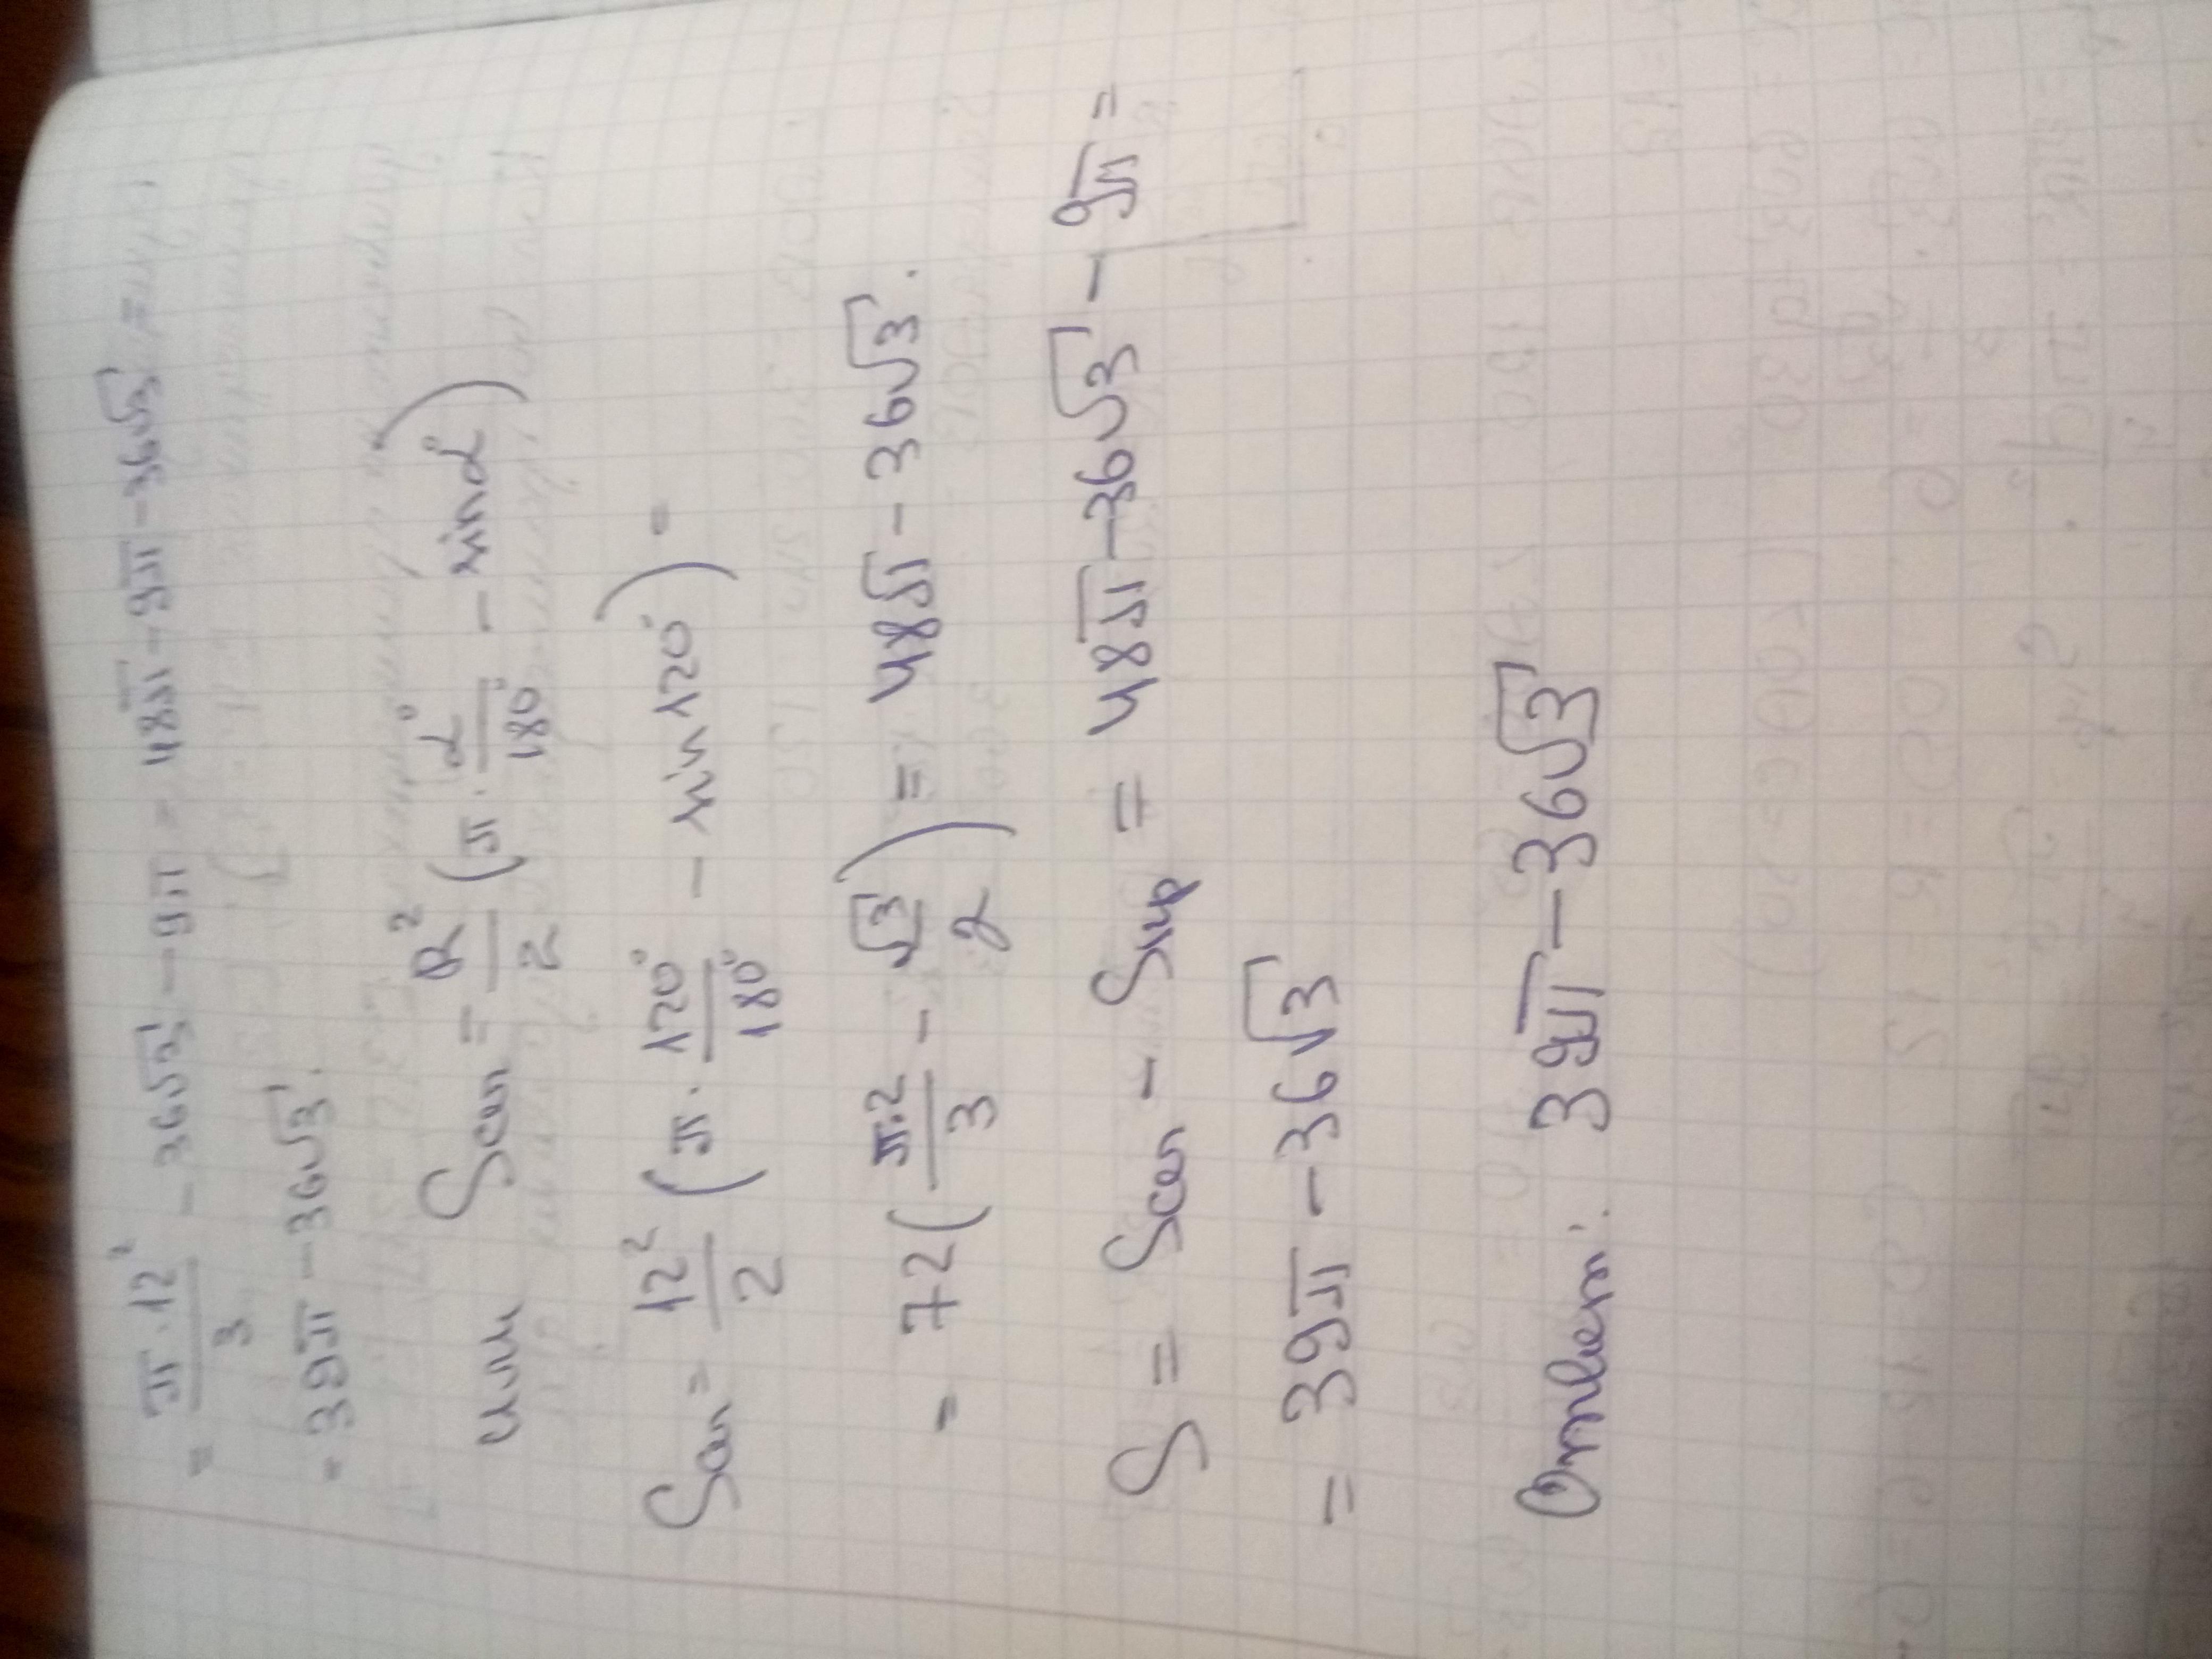 = π·12²/3 - 36√3 - 9π = 48π - 9π - 36√3 =
= 39π - 36√3.
или Sсег = R²/2 (π · α°/180° - sin α)
Sсег = 12²/2 (π · 120°/180° - sin 120°) =
= 72 (π·2/3 - √3/2) = 48π - 36√3.
S = Sсег - Sкр = 48π - 36√3 - 9π =
= 39π - 36√3
Ответ: 39π - 36√3